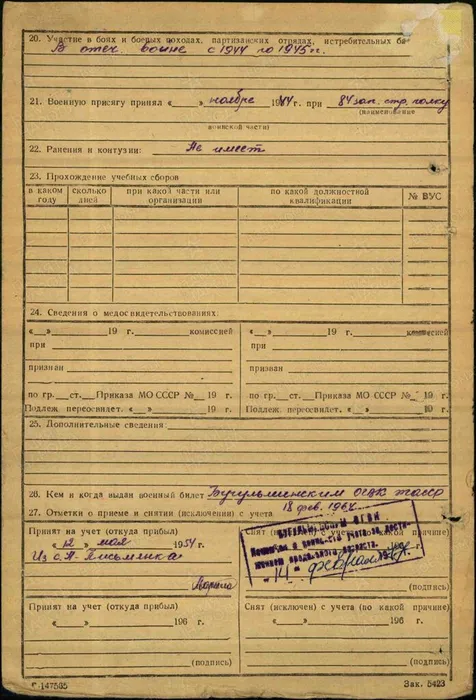 20. Участие в боях и боевых походах, партизанских отрядах, истребительных ба
В отеч. войне с 1944 по 1945 г.
21. Военную присягу принял «___» ноябре 1944 г. при 84 зап. стр. полку
(наименование
воинской части)
22. Ранения и контузии: Не имеет
23. Прохождение учебных сборов
в каком году | сколько дней | при какой части или организации | по какой должностной квалификации | № ВУС
24. Сведения о медосвидетельствованиях:
«__»__________19 г. комиссией «__»__________19 г. комиссией
при при
призван призван
по гр.___ст.___Приказа МО СССР №__19 г. по гр.___ст.___Приказа МО СССР №__19 г.
Подлеж. пересвидет. «__»________19 г. Подлеж. пересвидет. «__»________19 г.
25. Дополнительные сведения:
26. Кем и когда выдан военный билет Бугульминским ОГВК ТАССР
18 фев. 1964
27. Отметки о приеме и снятии (исключении) с учета
Принят на учет (откуда прибыл) Снят (исключен) с учета (по какой причине)
«12» мая 1954 г.
Из с. Н. Письмянка
"14" февраля
(подпись)
Принят на учет (откуда прибыл) Снят (исключен) с учета (по какой причине)
196 г. 196 г.
(подпись) (подпись)
Г-147565 Зак. 5423